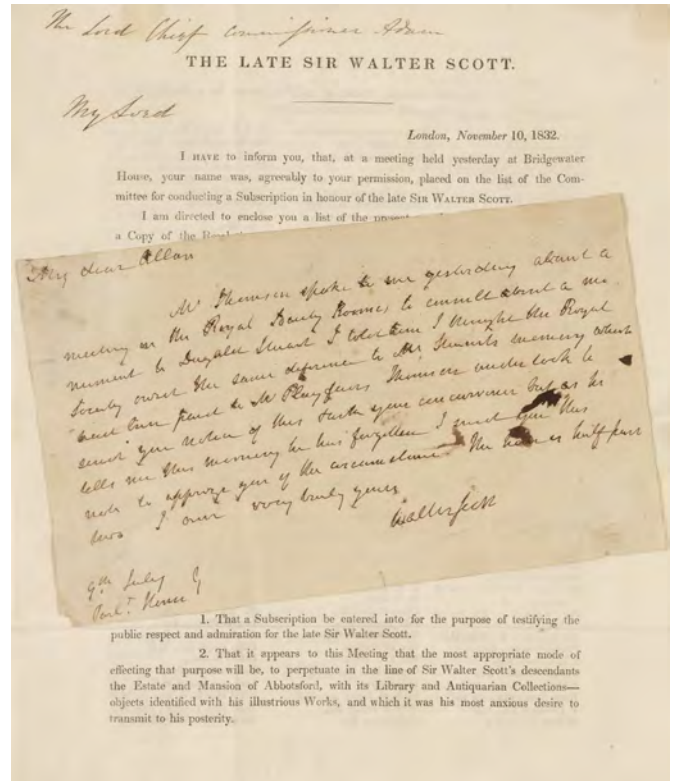 The Lord Chief Commissioner Adam
THE LATE SIR WALTER SCOTT.
My Lord
London, November 10, 1832.
I HAVE to inform you, that, at a meeting held yesterday at Bridgewater
House, your name was, agreeably to your permission, placed on the list of the Com-
mittee for conducting a Subscription in honour of the late SIR WALTER SCOTT.
I am directed to enclose you a list of the present
a Copy of the
My dear Allan
Mr Thomson spoke to me yesterday about a
meeting in the Royal Society Rooms to consult about a mo
nument to Dugald Stuart I told him I thought the Royal
Society owed the same deference to Mr Stuarts memory which
had been paid to Mr Playfairs Thomson undertook to
send you notice of this
tells me this morning he has forgotten I send you this
note to apprize you of the circumstance The hour is half past
two I am very truly yours
Walter Scott
9th July
Parlt House
1. That a Subscription be entered into for the purpose of testifying the
public respect and admiration for the late Sir Walter Scott.
2. That it appears to this Meeting that the most appropriate mode of
effecting that purpose will be, to perpetuate in the line of Sir Walter Scott's descendants
the Estate and Mansion of Abbotsford, with its Library and Antiquarian Collections—
objects identified with his illustrious Works, and which it was his most anxious desire to
transmit to his posterity.